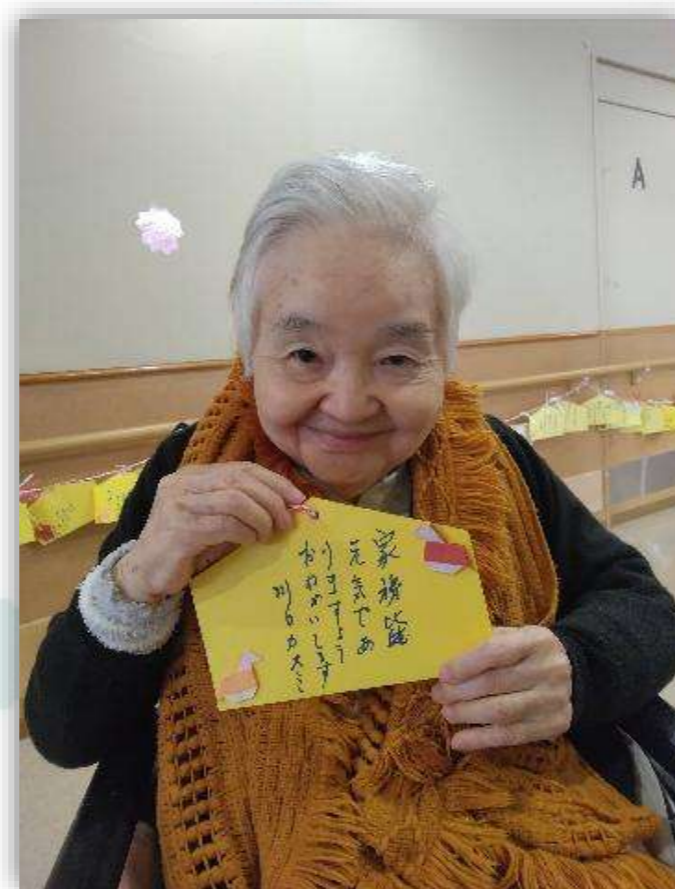 家族皆
元気であ
りますよう
おねがいします
川口カスミ
A